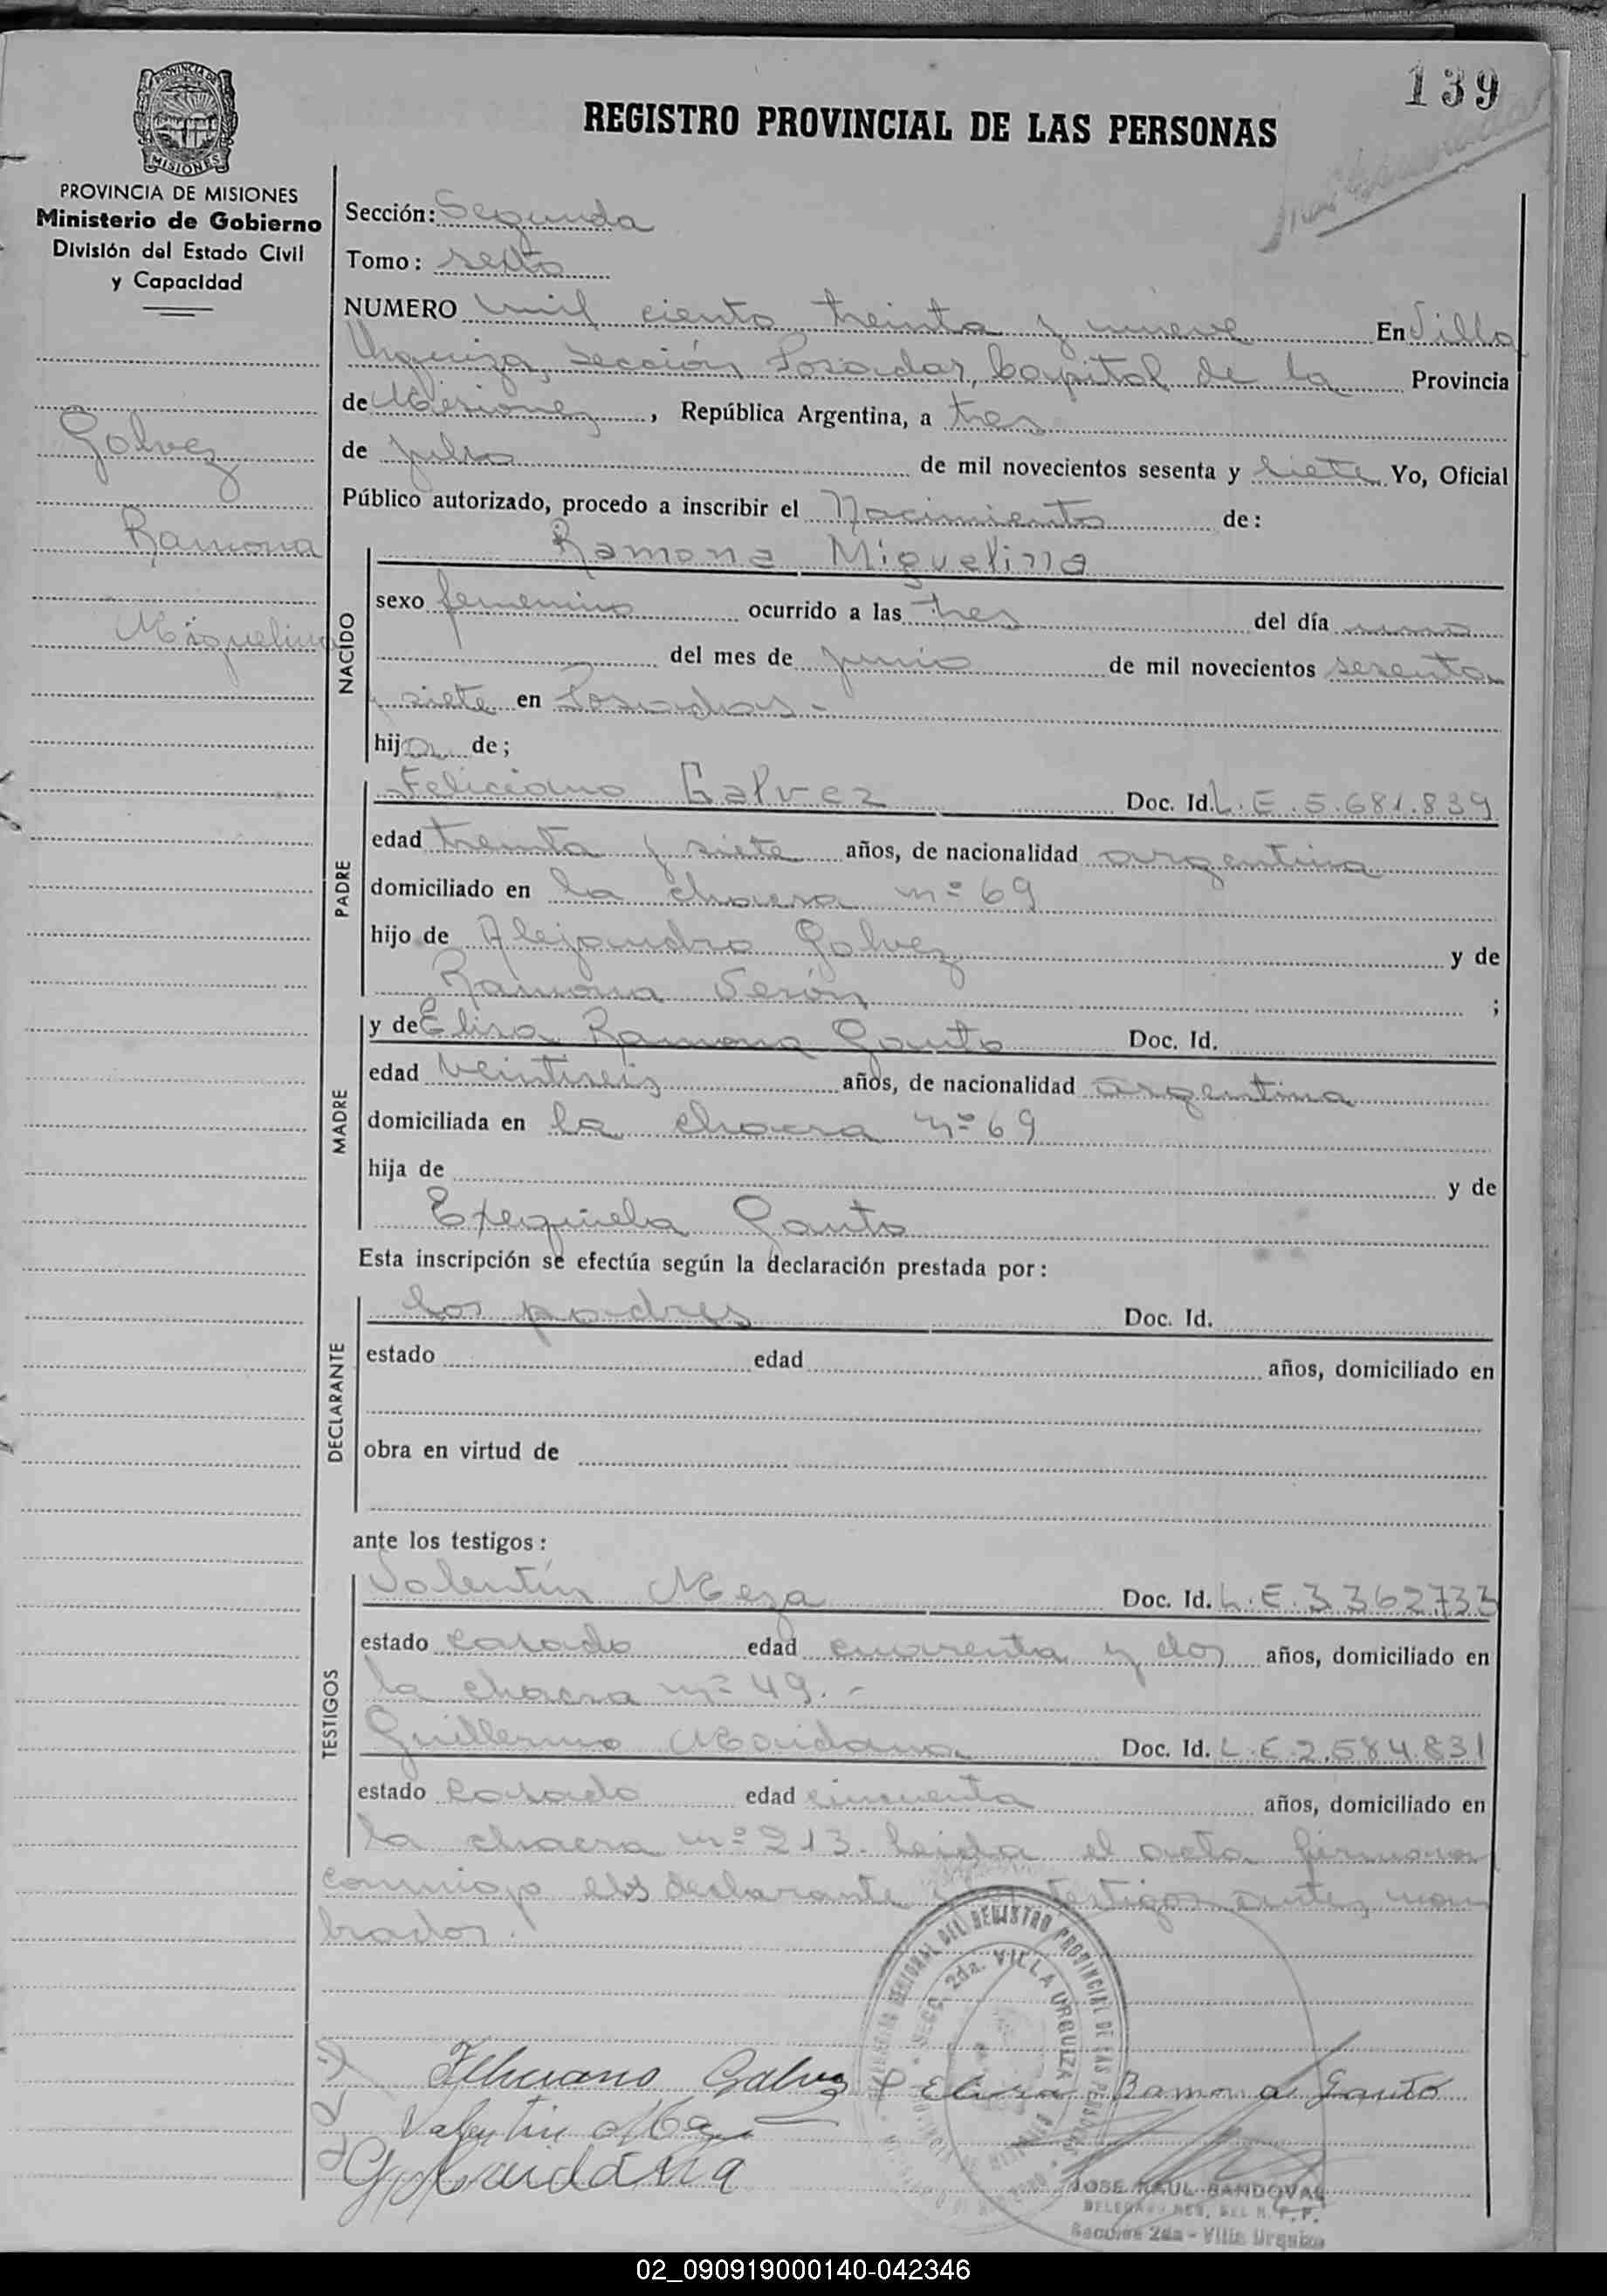 139
REGISTRO PROVINCIAL DE LAS PERSONAS
PROVINCIA DE MISIONES
MISIONES
PROVINCIA DE MISIONES
Ministerio de Gobierno
División del Estado Civil
y Capacidad
Galvez
Ramona
Miguelina
Sección: Segunda
Tomo: sexto
NUMERO mil ciento treinta y nueve En Villa
Urquiza, sección Posadas, Capital de la Provincia
de Misiones, República Argentina, a tres
de julio de mil novecientos sesenta y siete Yo, Oficial
Público autorizado, procedo a inscribir el Nacimiento de:
NACIDO
Ramona Miguelina
sexo femenino ocurrido a las tres del día uno
del mes de junio de mil novecientos sesenta
y siete en Posadas.-
hija de;
PADRE
Feliciano Galvez Doc. Id. L.E.5.681.839
edad treinta y siete años, de nacionalidad argentina
domiciliado en la chacra nº 69
hijo de Alejandro Galvez y de
Ramona Verón ;
MADRE
y de Elisa Ramona Gauto Doc. Id.
edad veintiseis años, de nacionalidad argentina
domiciliada en la chacra nº 69
hija de y de
Exequiela Gauto
Esta inscripción se efectúa según la declaración prestada por:
DECLARANTE
los padres Doc. Id.
estado edad años, domiciliado en
obra en virtud de
ante los testigos:
TESTIGOS
Valentín Meza Doc. Id. L.E.3362733
estado casado edad cuarenta y dos años, domiciliado en
la chacra nº 49.-
Guillermo Maidana Doc. Id. L.E.2.584.831
estado casado edad cincuenta años, domiciliado en
la chacra nº 213. Leida el acta firmara
conmigo declarante testigos antes nom
brados.
REGISTRO PROVINCIAL DE LAS PERSONAS
SECC. 2da. VILLA URQUIZA
Feliciano Galvez Elisa Ramona Gauto
Valentin Meza
G Maidana
JOSE RAUL SANDOVAL
Sección 2da - Villa Urquiza
02_090919000140-042346